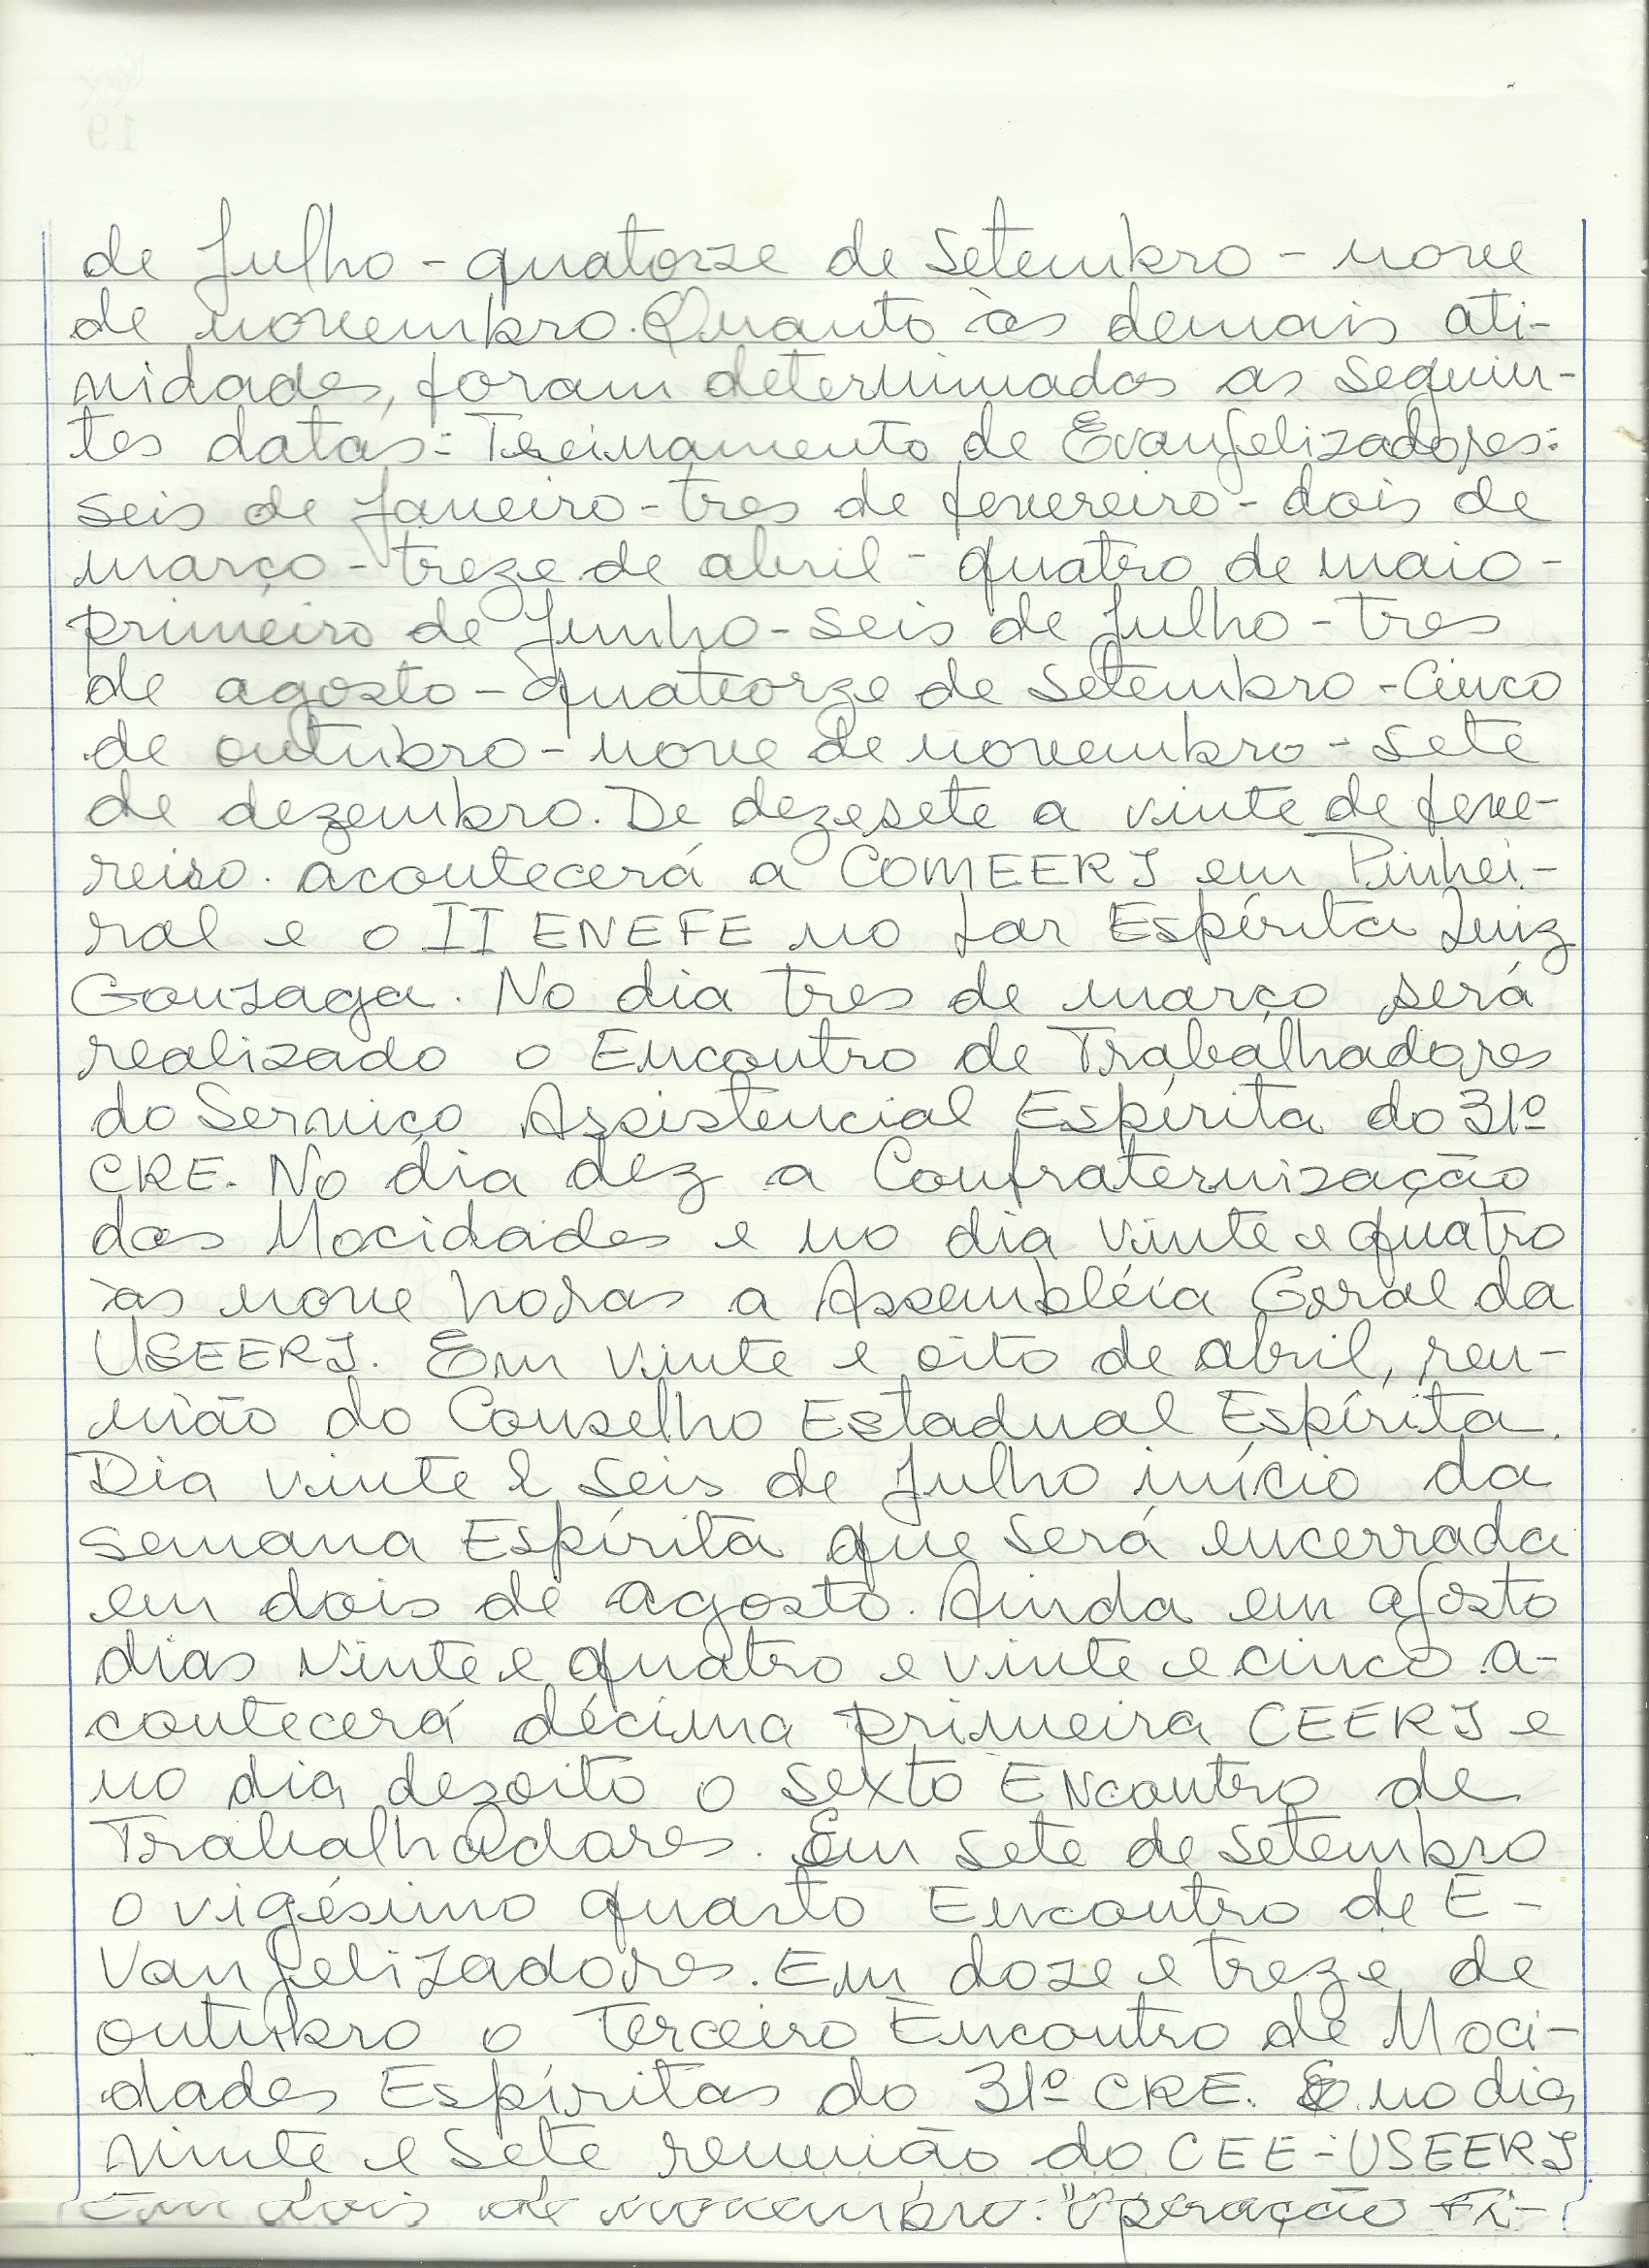 de Julho - quatorze de Setembro - nove
de novembro. Quanto às demais ati-
vidades, foram determinadas as seguin-
tes datas: Treinamento de Evangelizadores:
seis de Janeiro - tres de fevereiro - dois de
março - treze de abril - quatro de maio -
primeiro de Junho - seis de Julho - tres
de agosto - quateorze de Setembro - Cinco
de outubro - nove de novembro - sete
de dezembro. De dezesete a vinte de feve-
reiro. acontecerá a COMEERJ em Pinhei-
ral e o II ENEFE no Lar Espírita Luiz
Gonzaga. No dia tres de março será
realizado o Encontro de Trabalhadores
do Serviço Assistencial Espírita do 31º
CRE. No dia dez a Confraternização
das Mocidades e no dia vinte e quatro
às nove horas a Assembléia Geral da
USEERJ. Em vinte e oito de abril, reu-
nião do Conselho Estadual Espírita.
Dia vinte e seis de Julho início da
semana Espírita que será encerrada
em dois de agosto. Ainda em agosto
dias vinte e quatro e vinte e cinco a-
contecerá décima primeira CEERJ e
no dia dezoito o sexto ENcontro de
Trabalhadores. Em sete de setembro
o vigésimo quarto Encontro de E-
vangelizadores. Em doze e treze de
outubro o Terceiro Encontro de Moci-
dades Espíritas do 31º CRE. E no dia
vinte e sete reunião do CEE-USEERJ
Em dois de novembro: "Operação Fi-